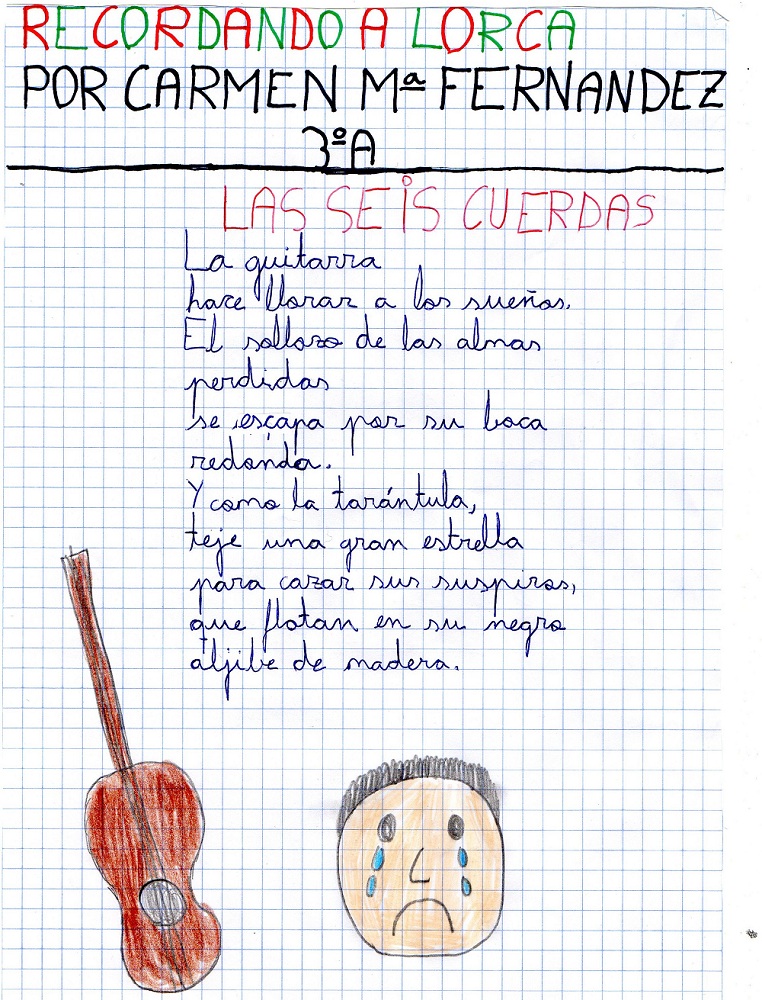 RECORDANDO A LORCA
POR CARMEN Mª FERNANDEZ
3ºA
LAS SEIS CUERDAS
La guitarra
hace llorar a los sueños.
El sollozo de las almas
perdidas
se escapa por su boca
redonda.
Y como la tarántula,
teje una gran estrella
para cazar sus suspiros,
que flotan en su negro
aljibe de madera.